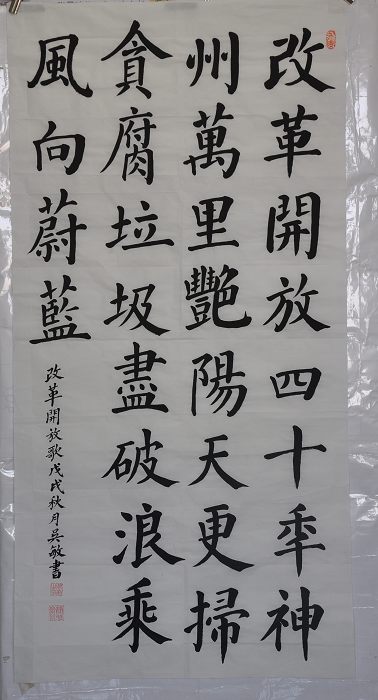 改革開放四十年神
州萬里艷陽天更掃
貪腐垃圾盡破浪乘
風向蔚藍
改革開放歌戊戌秋月吳敏書